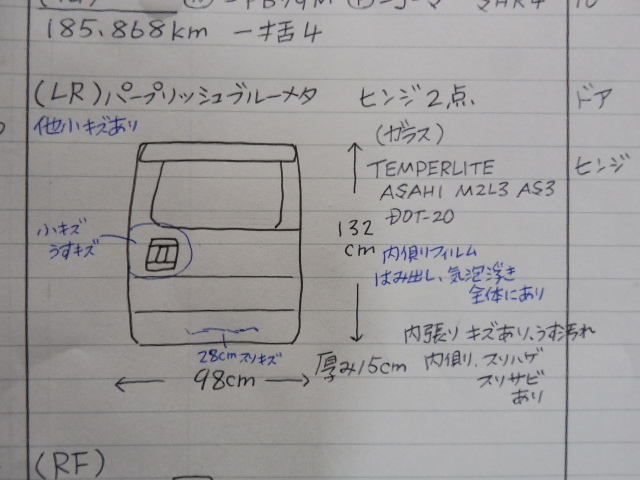 185.868km 一括4
(LR)パープリッシュブルーメタ ヒンジ2点、 ドア
他小キズあり
(ガラス)
TEMPERLITE ヒンジ
ASAHI M2L3 AS3
DOT-20
132cm
小キズ
うすキズ
内側りフィルム
はみ出し、気泡浮き
全体にあり
28cmスリキズ
98cm
厚み15cm
内張りキズあり、うす汚れ
内側り、スリハゲ
スリサビ
あり
(RF)